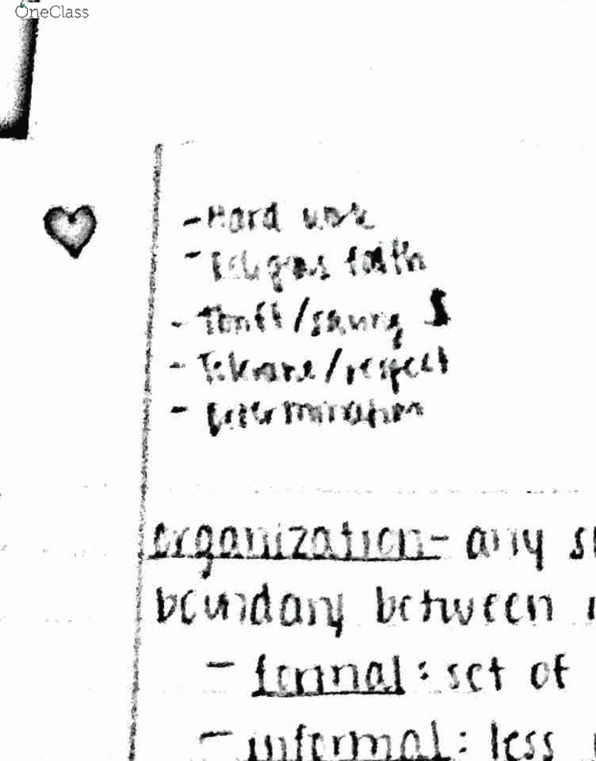 OneClass
- Hard work
- Religous faith
- Thrift/saving $
- Tolerance/respect
- Determination
organization- any
boundary between
- formal: set of
- informal: less